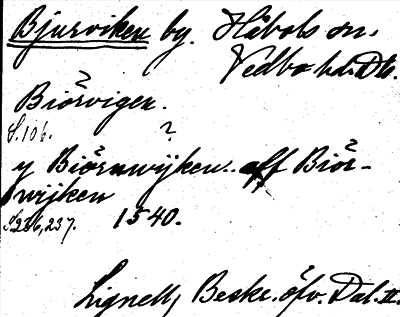 Bjurviken by. Håbols sn.
Vedbo hd. Dls.
Biörvigen.
S. 106. ?
y Biörnwijken.. aff Biör-
wijken
S. 236, 237. 1540.
Lignell, Beskr. öfv. Dal. II.